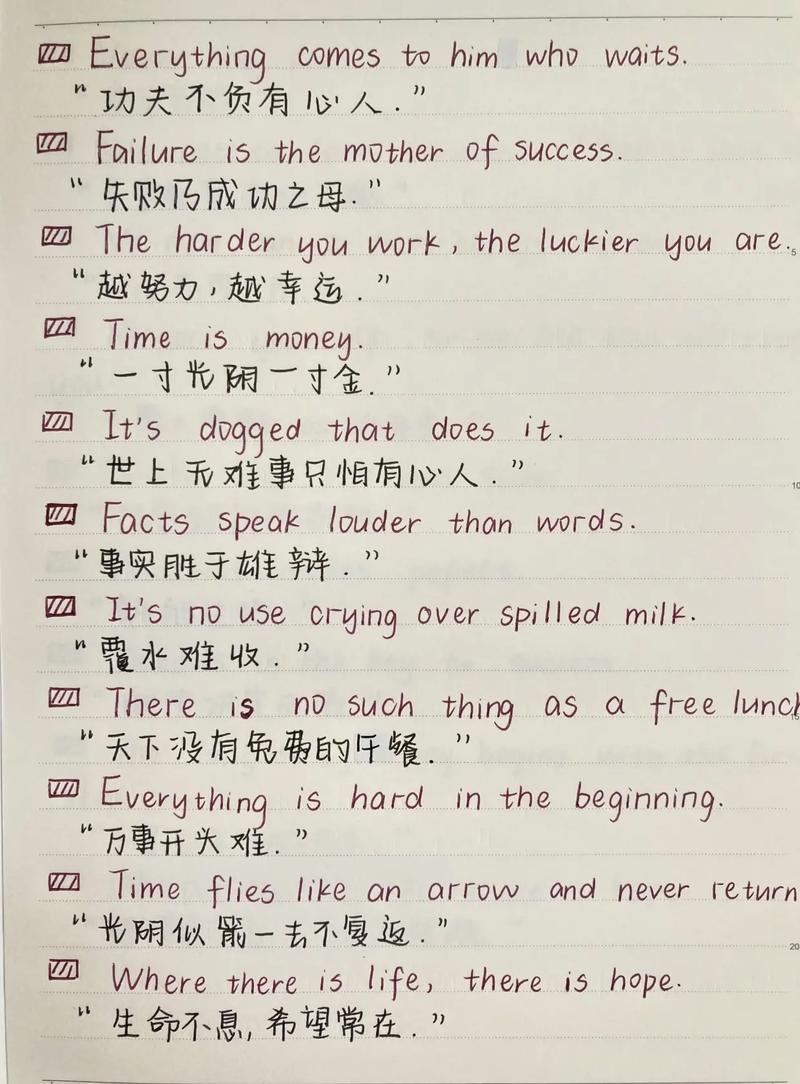 Everything comes to him who waits.
“功夫不负有心人.”
Failure is the mother of success.
“失败乃成功之母.”
The harder you work, the luckier you are.
5
“越努力,越幸运.”
Time is money.
“一寸光阴一寸金.”
It's dogged that does it.
“世上无难事只怕有心人.”
10
Facts speak louder than words.
“事实胜于雄辩.”
It's no use crying over spilled milk.
“覆水难收.”
There is no such thing as a free lunch
15
“天下没有免费的午餐.”
Everything is hard in the beginning.
“万事开头难.”
Time flies like an arrow and never return
“光阴似箭一去不复返.”
20
Where there is life, there is hope.
“生命不息,希望常在.”